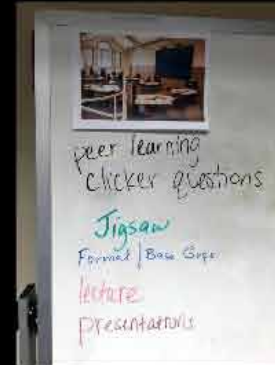 peer learning
clicker questions
Jigsaw
Formal | Base
lecture
presentations